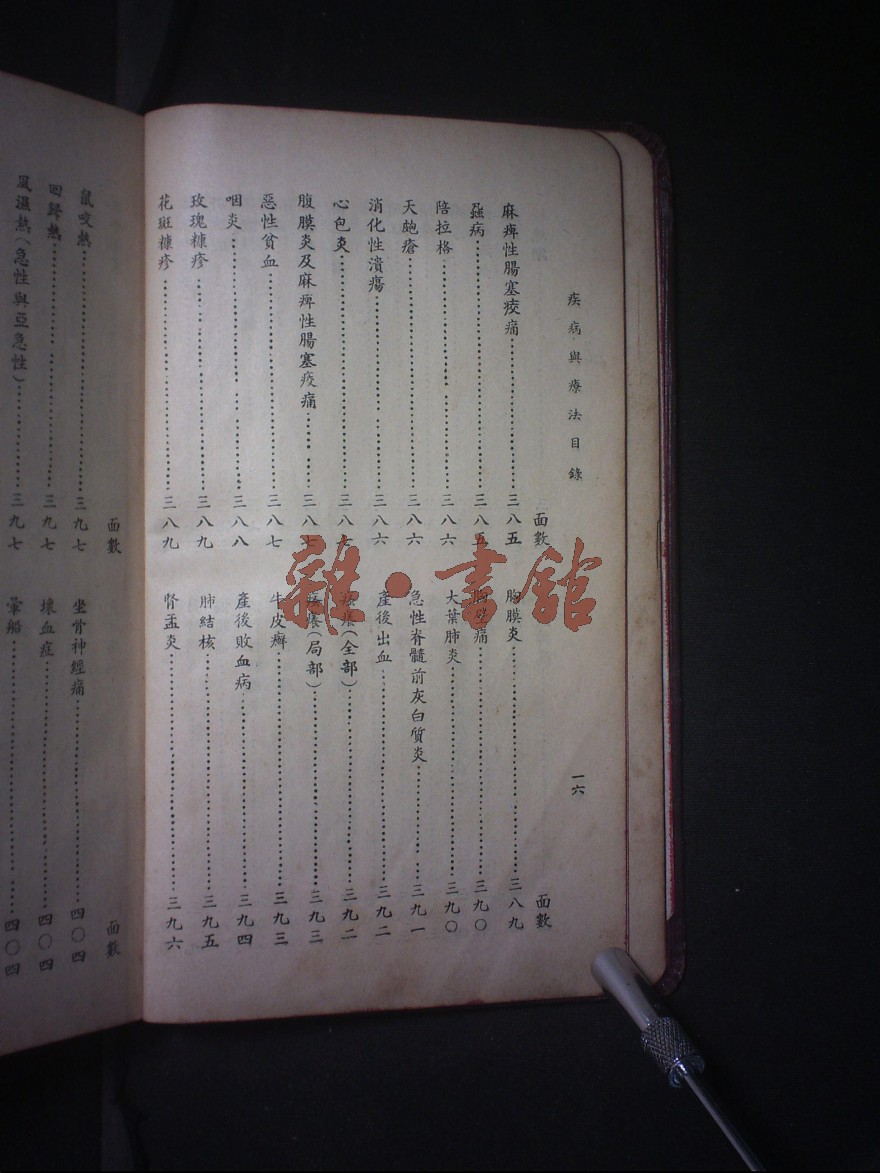 疾病與療法目錄
一六
面數
麻痺性腸塞疫痛……三八五
蝨病……三八五
陪拉格……三八六
天皰瘡……三八六
消化性潰瘍……三八六
心包炎……三八七
腹膜炎及麻痺性腸塞疫痛……三八七
惡性貧血……三八七
咽炎……三八八
玫瑰糠疹……三八九
花斑糠疹……三八九
面數
胸膜炎……三八九
胸壁痛……三九〇
大葉肺炎……三九〇
急性脊髓前灰白質炎……三九一
產後出血……三九二
瘙癢(全部)……三九二
瘙癢(局部)……三九三
牛皮癬……三九三
產後敗血病……三九四
肺結核……三九五
腎盂炎……三九六
雜·書館
面數
鼠咬熱……三九七
回歸熱……三九七
風濕熱(急性與亞急性)……三九七
面數
坐骨神經痛……四〇四
壞血症……四〇四
暈船……四〇四